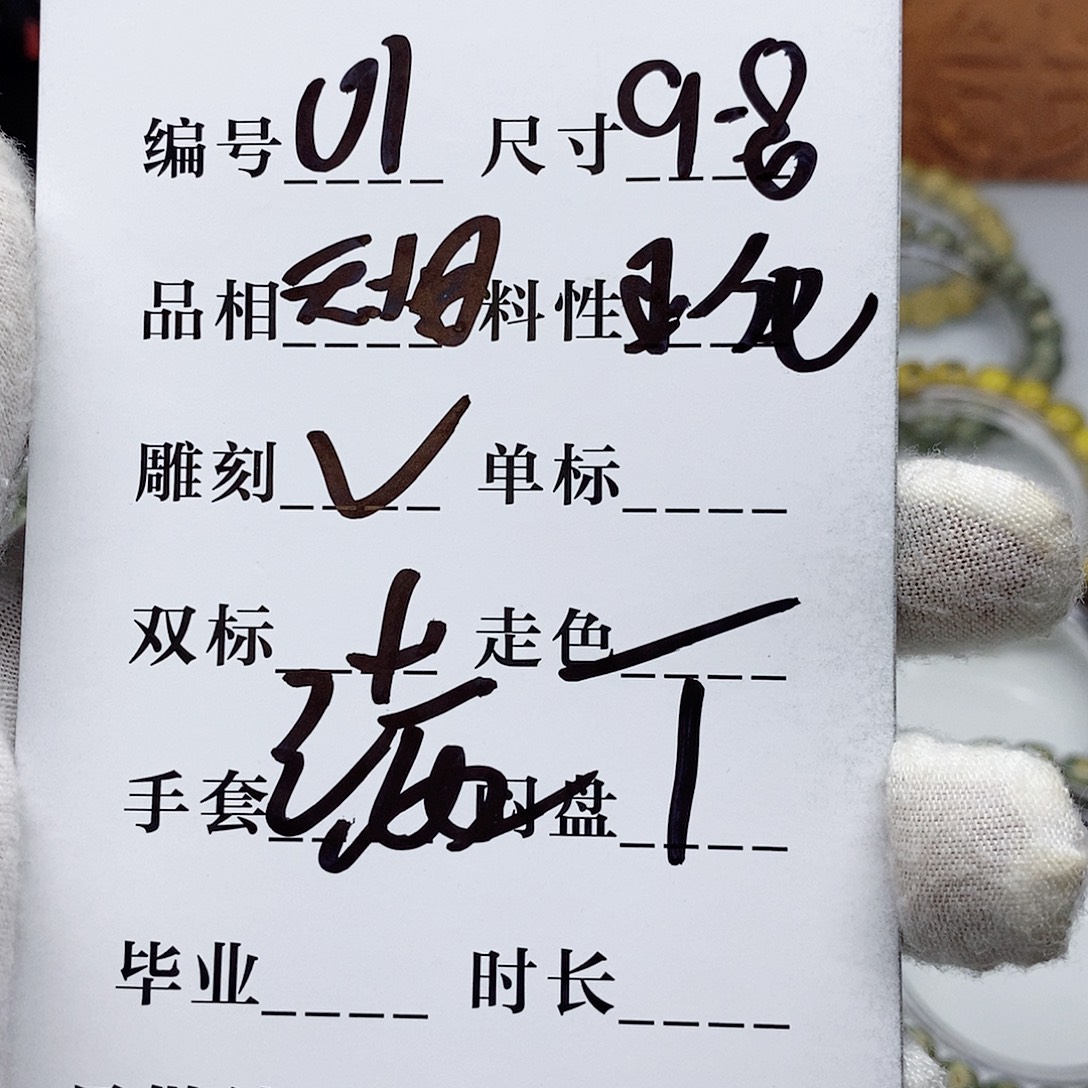 编号 01 尺寸 9-8
品相 料性 玉化
雕刻 ✓ 单标
双标 走色
手套 闷盘
毕业 时长